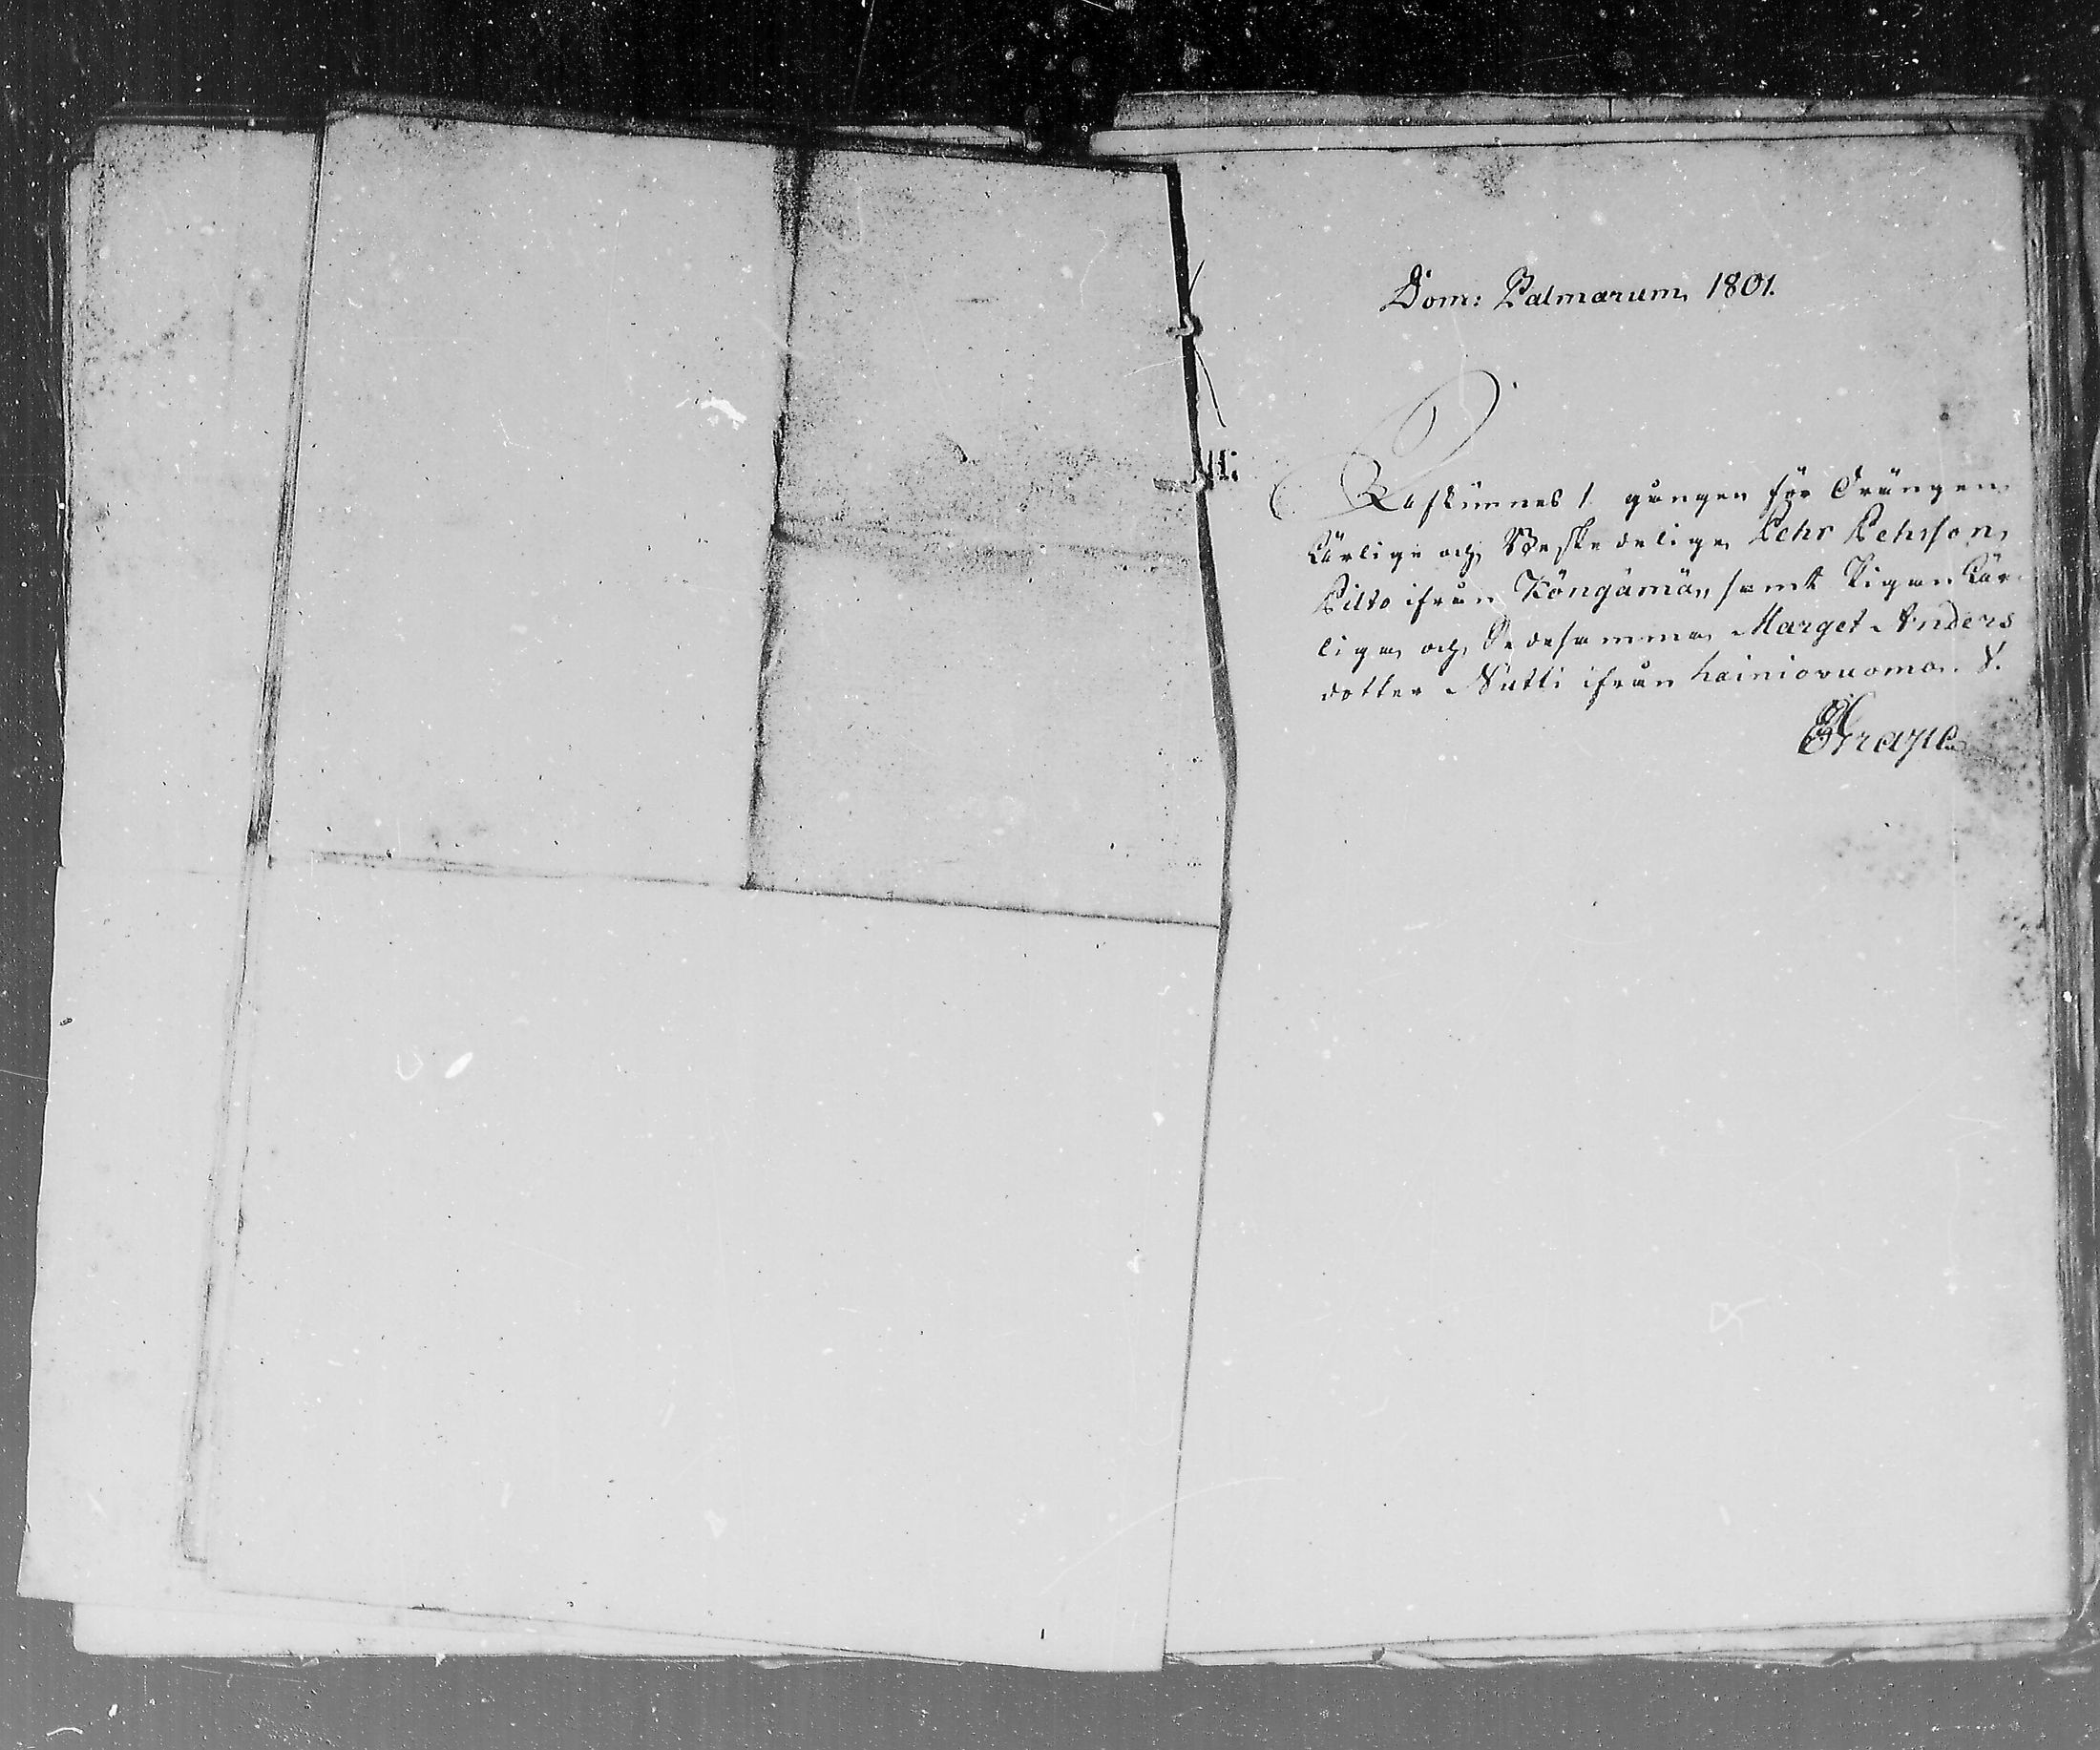 Dom: Palmarum 1801.
Afkunnes 1 gången för Drängen
Ärlige och Beskedelige Pehr Pehrson
Pilto ifrån Köngämä, samt Pigan Är-
liga och Dydesamma Marget Anders
dotter Nutti ifrån Lainiovuoma. V.